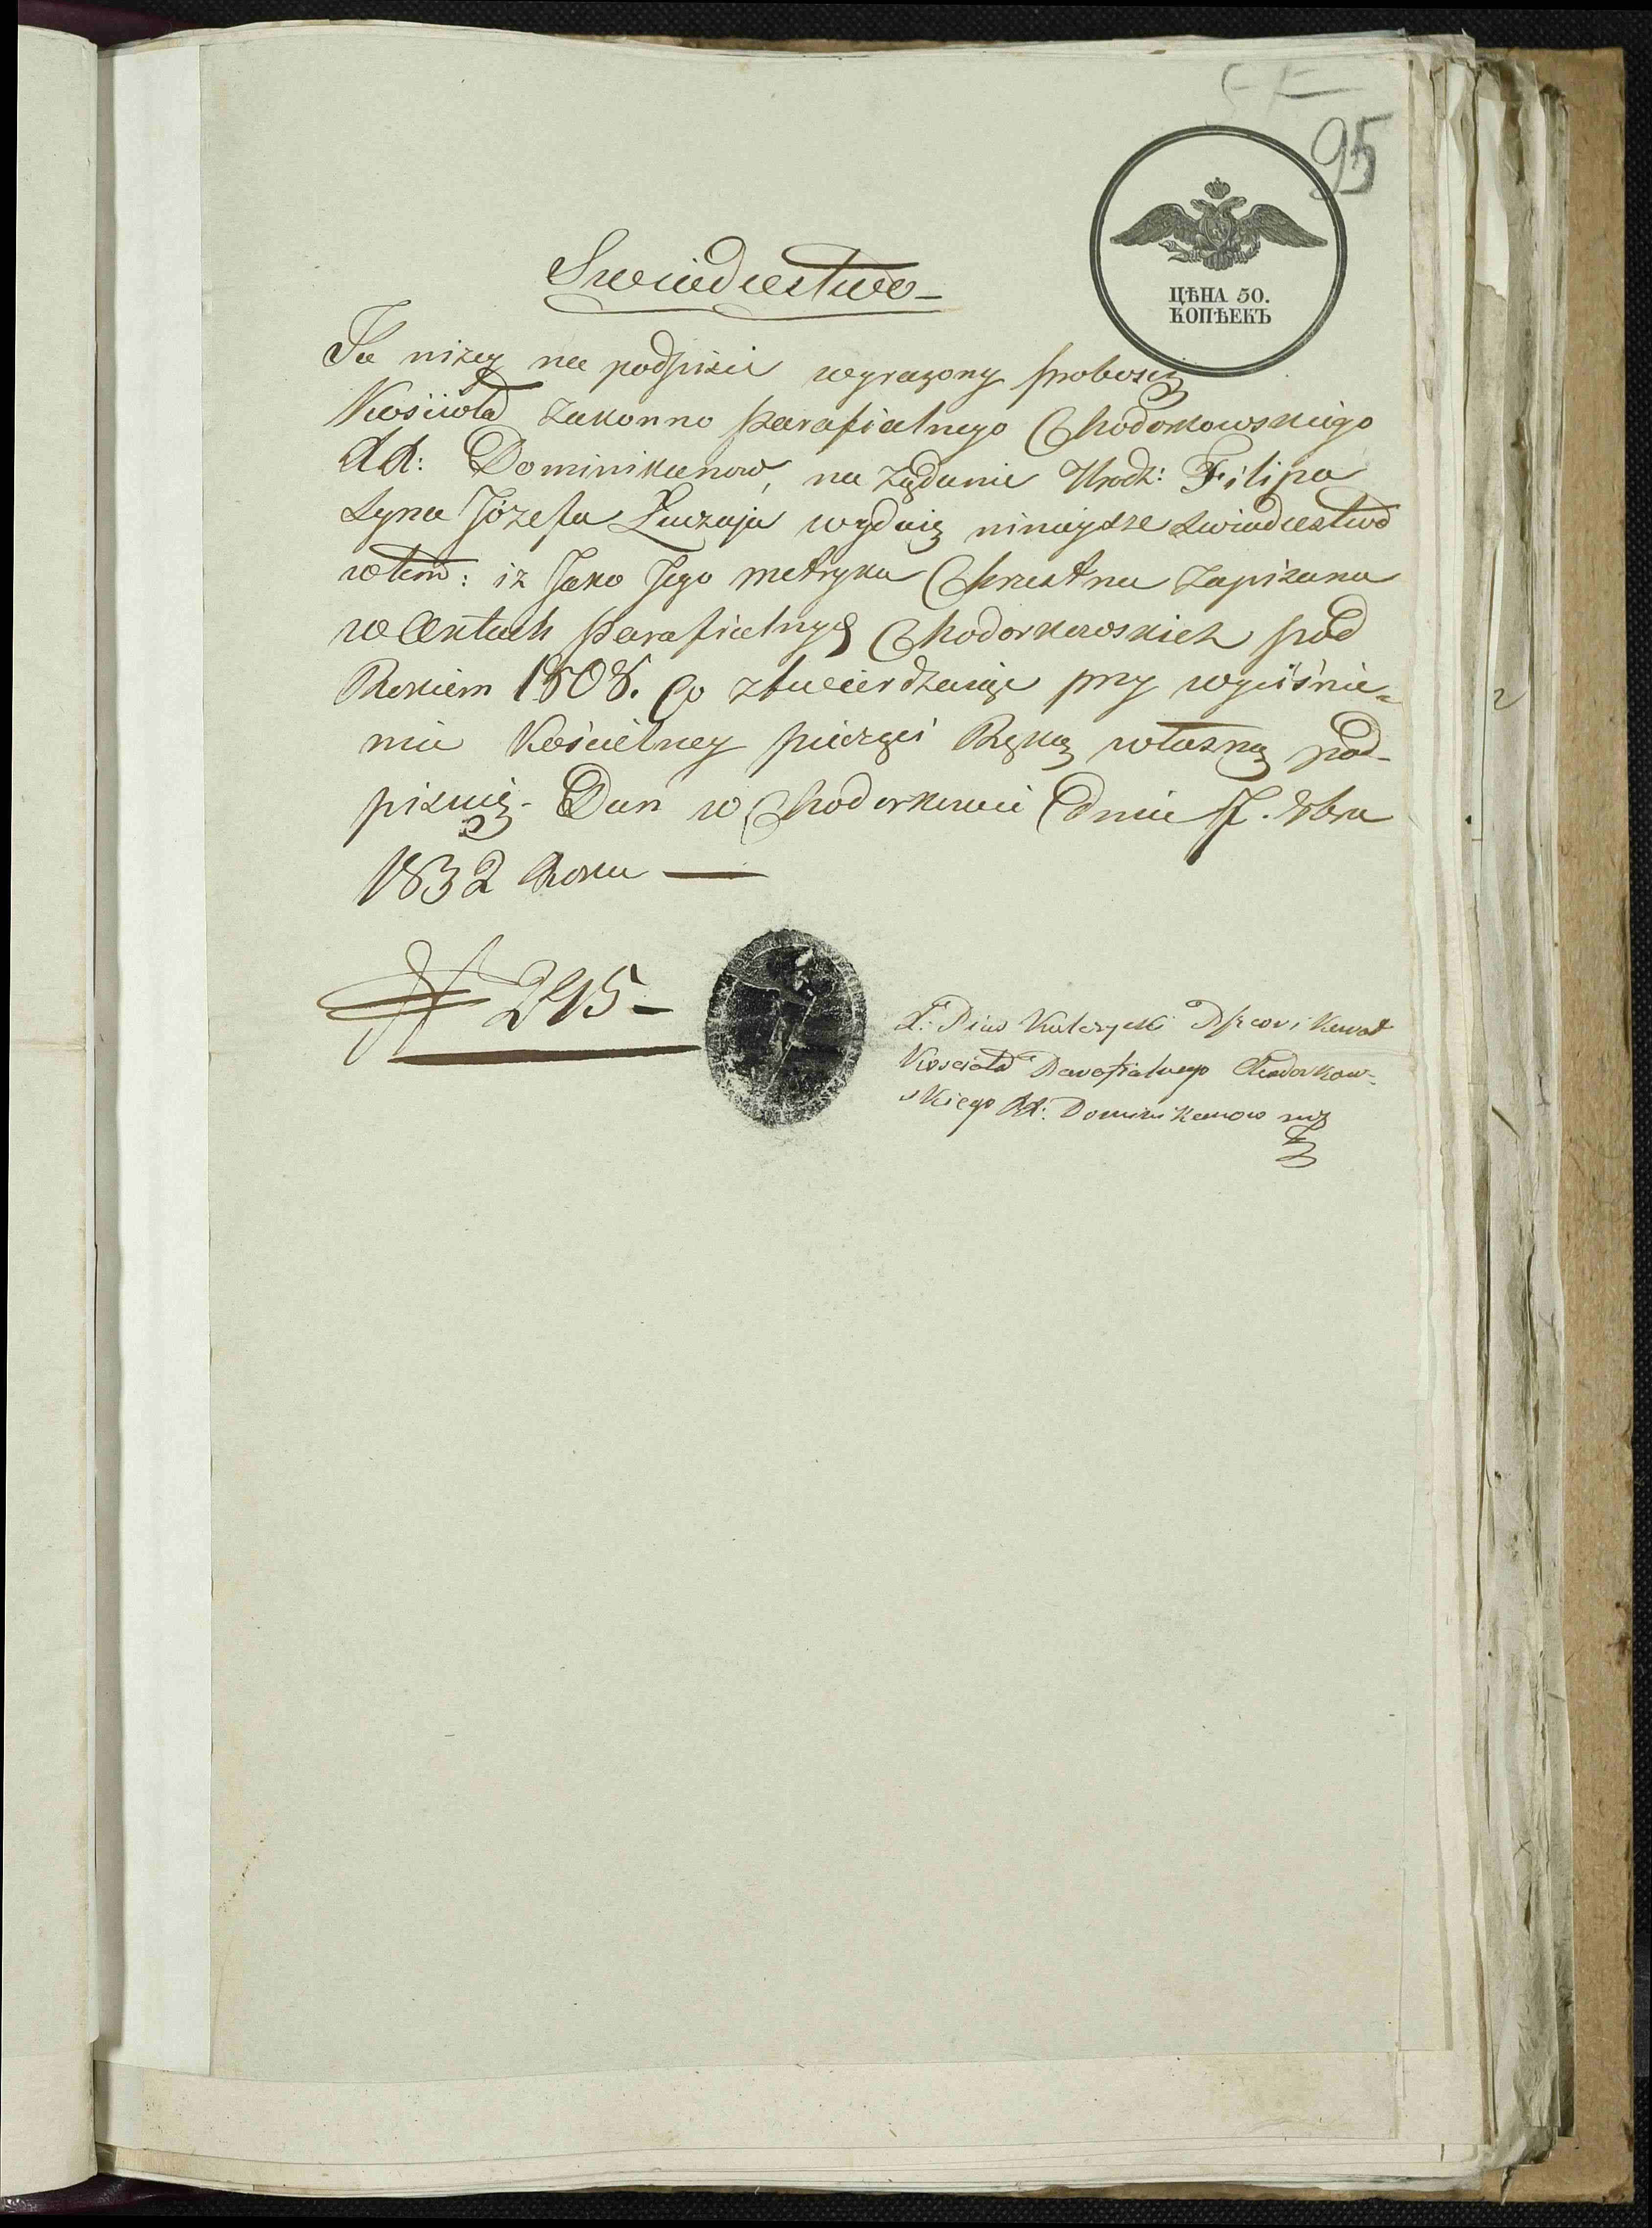 95
ЦѢНА 50.
КОПѢЕКЪ
Swiadectwo
Ja niżey na podpisie wyrażony proboszcz
Kościoła zakonno parafialnego Chodorkowskiego
XX: Dominikanow, na żądanie Urodz: Filipa
syna Józefa wydaię ninieysze swiadectwo
w tem: iż Jako Jego metryka Chrzestna zapisana
w Aktach parafialnych Chodorkowskich pod
Rokiem 1808. Co ztwierdzaiąc przy wyciśnie=
niu Kościelney pieczęci Ręką własną pod-
pisuię - Dan w Chodorkowie Dnia 8bra
1832 Roku —
N 295 -
X: Pius Kulczycki i Kurat
Koscioła Parafialnego Chodorkow-
skiego XX: Dominikanow mp